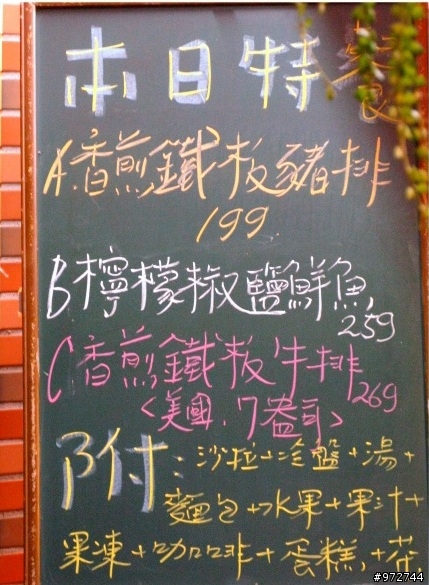 本日特餐
A.香煎鐵板豬排
199
B檸檬椒鹽鮮魚
259
C香煎鐵板牛排
269
<美國.7盎司>
附:沙拉+冷盤+湯+
麵包+水果+果汁+
果凍+咖啡+蛋糕+茶
#972744